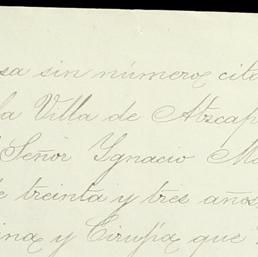 sa sin número, cito
la Villa de Atzcap
Señor Ygnacio M
treinta y tres años,
ina y Cirujía que